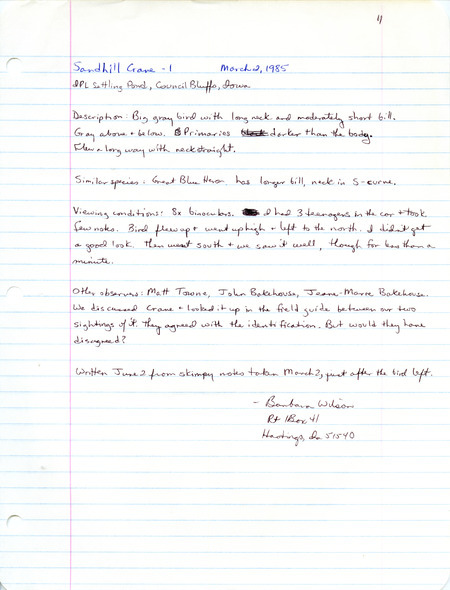 4
Sandhill Crane - 1 March 2, 1985
IPL Settling Pond, Council Bluffs, Iowa
Description: Big gray bird with long neck and moderately short bill.
Gray above + below. Primaries darker than the body.
Flew a long way with neck straight.
Similar species: Great Blue Heron has longer bill, neck in S-curve.
Viewing conditions: 8x binoculars. I had 3 teenagers in the car + took
few notes. Bird flew up + went up high + left to the north. I didn't get
a good look. Then went south + we saw it well, though for less than a
minute.
Other observers: Matt Toone, John Bakehouse, Jeane-Marie Bakehouse.
We discussed Crane + looked it up in the field guide between our two
sightings of it. They agreed with the identification. But would they have
disagreed?
Written June 2 from skimpy notes taken March 2, just after the bird left.
- Barbara Wilson
Rt 1 Box 41
Hastings, Ia 51540